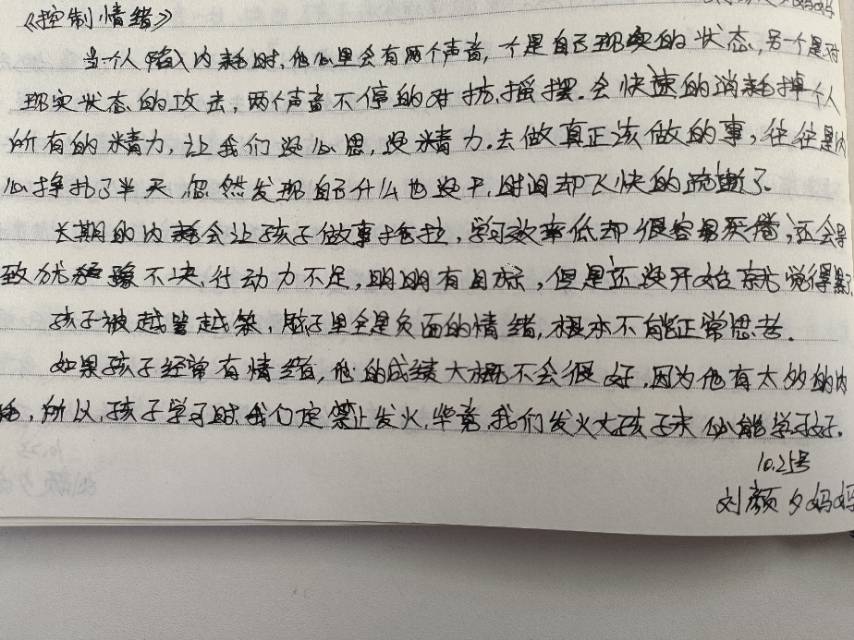 《控制情绪》
当一个人陷入内耗时，他心里会有两个声音，一个是自己现实的状态，另一个是对
现实状态的攻击，两个声音不停的对抗、摇摆。会快速的消耗掉个人
所有的精力，让我们没心思，没精力。去做真正该做的事，往往是内
心挣扎了半天忽然发现自己什么也没干，时间却飞快的流逝了。
长期的内耗会让孩子做事拖拉，学习效率低却很容易疲倦，还会导
致犹豫不决、行动力不足，明明有目标，但是还没开始就觉得累
孩子被越骂越笨，脑子里全是负面的情绪，根本不能正常思考。
如果孩子经常有情绪，他的成绩大概不会很好，因为他有太多的内
耗，所以，孩子学习时我们定禁止发火，毕竟，我们发火大孩子未必能学好。
10.25号
刘颜夕妈妈